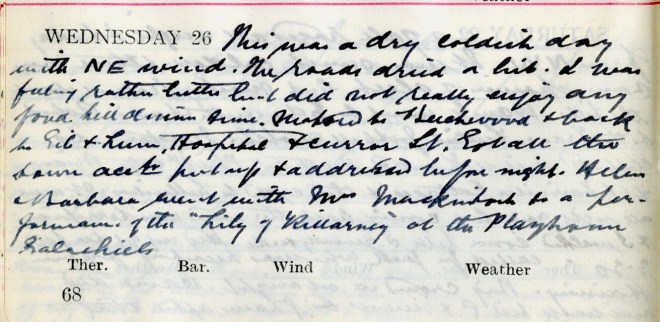 WEDNESDAY 26 This was a dry coldish day
with NE wind. The roads dried a bit. I was
feeling rather better but did not really enjoy any
food till dinner time. Motored to Beechwood & back
to Eil & Lunn, Hospital & St. Got all the
down accts put up & addressed before night. Helen
& Barbara went with Mrs Mackintosh to a per-
formance of the "Lily of Killarney" at the Playhouse
Galashiels
Ther. Bar. Wind Weather
68